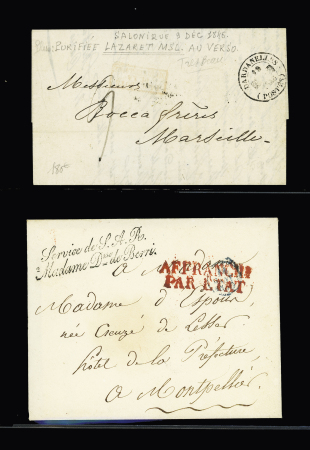 SALONIQUE 9 DEC 1848
PURIFIÉE LAZARET MSL. AU VERSO.
DARDANELLES
Messieurs
Rocca frères
Marseille
Service de S.A.R.
Madame Dsse de Berri.
AFFRANCHI
PAR ETAT
à Madame
Madame d'Espous
née Creuzé de Lesser
hôtel de la Préfecture
à Montpellier